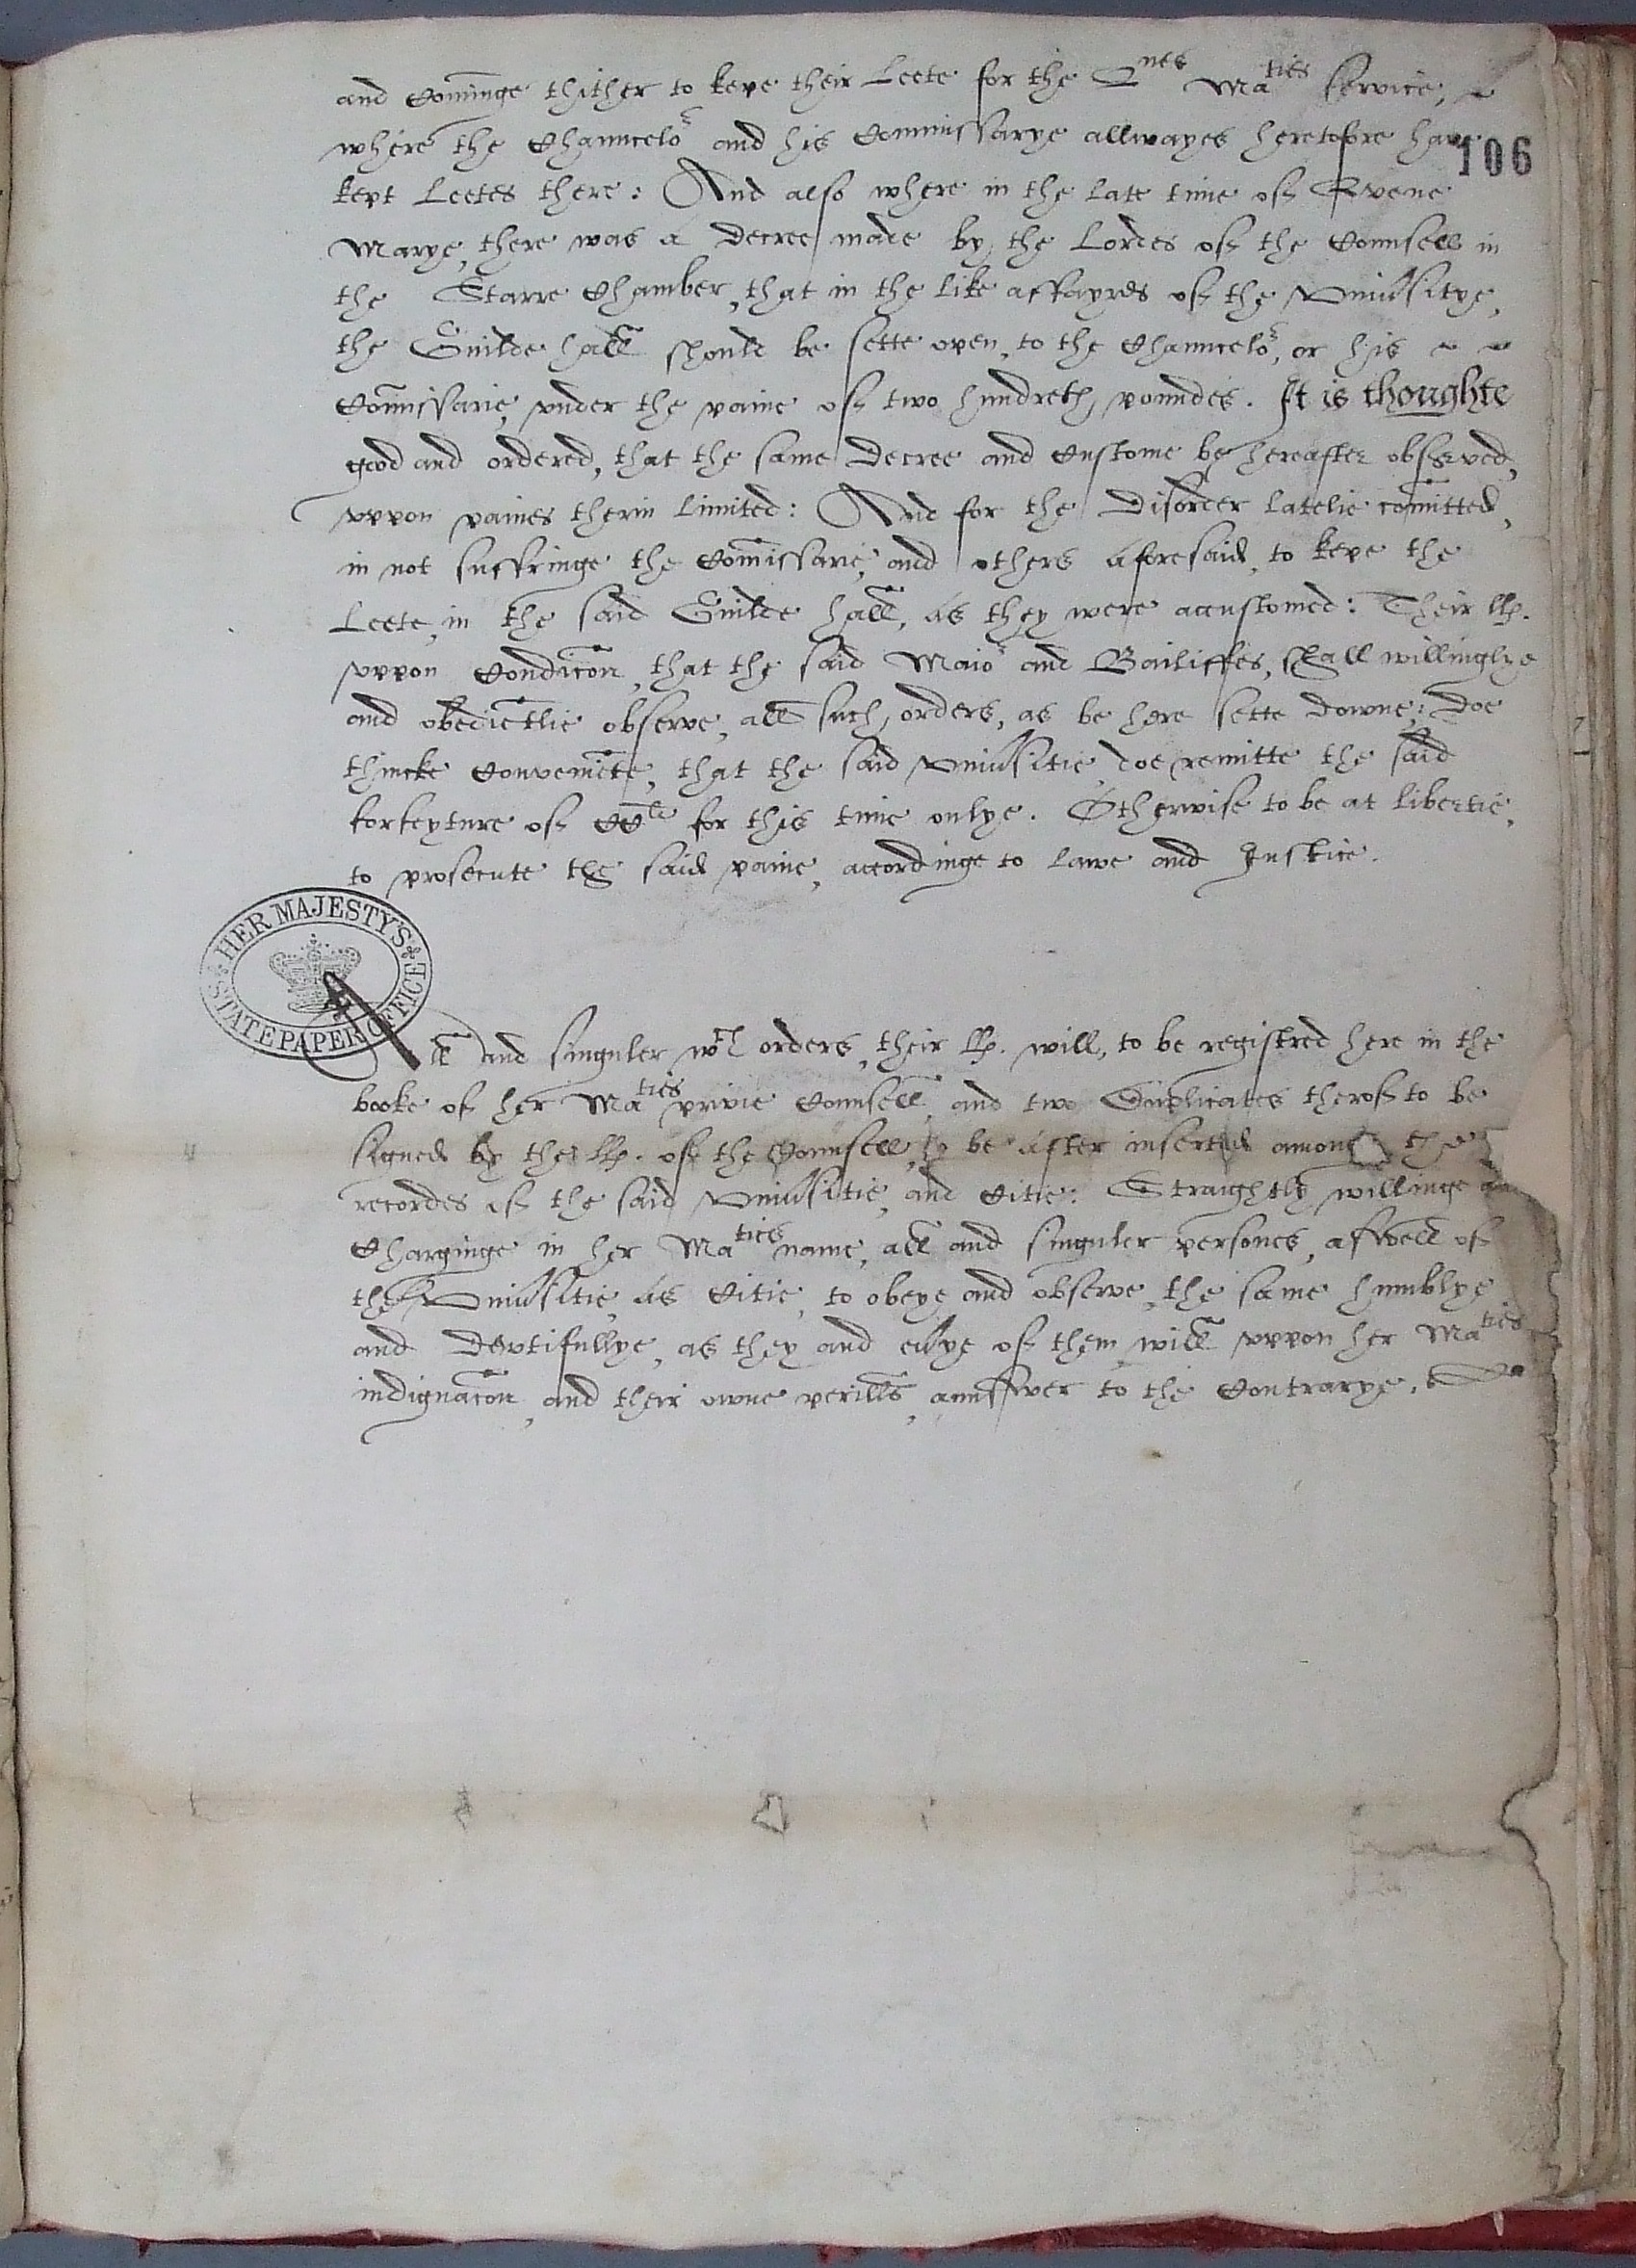 and Com̄inge thither to kepe their Leete for the Qnes Maties service,
where the Chauncelor and his Commissarye allwayes heretofore have
106
kept Leetes there: And also where in the late time of Quene
Marye, there was a Decree made by the Lordes of the Counsell in
the Starre Chamber, that in the like affayres of the Vniusitye,
the Guilde hall should be sette open, to the Chauncelor, or his
Com̄issarie, vnder the paine of two hundreth poundes. It is thoughte
good and ordered, that the same Decree and Custome be hereafter observed,
vppon paines therin limited: And for the Disorder latelie com̄itted,
in not suffringe the Com̄issarie, and others aforesaid, to kepe the
Leete, in the said Guilde hall, as they were accustomed: Their llp.
vppon Condic̄on, that the said Maior and Bailiffes, shall willinglye
and obediētlie observe, all such orders, as be here sette downe: Doe
thincke Conveniēte, that the said Vniusitie, doe remitte the said
forfeyture of CCli for this time onlye. Otherwise to be at libertie,
to prosecute the said paine, accordinge to lawe and Justice.
HER MAJESTY'S STATE PAPER OFFICE
All and singuler wch orders, their llp. will, to be registred here in the
booke of her Maties privie Counsell, and two Duplicates therof to be
signed by the llp. of the Counsell, to be after inserted among the
recordes of the said Vniusitie, and Citie: Straightly willinge
Charginge in her Maties name, all and singuler persones, aswell of
the Vniusitie, as Citie, to obeye and observe, the same humblye
and Dewtifullye, as they and euye of them will vppon her Maties
indignac̄on, and their owne perills, aunswer to the Contrarye.